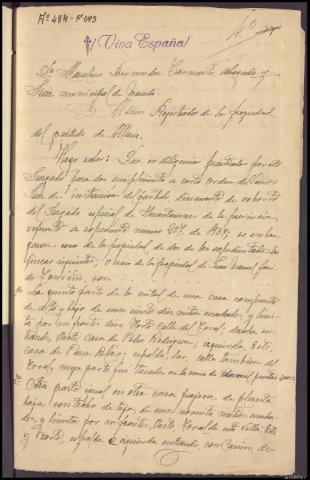 Aº 484 - Fº 093
¡Viva España!
Dn Marcelino Bermudez, abogado y
Juez municipal de
Registrador de la propiedad
del partido de
Hago saber: Que en diligencias practicadas por este
Juzgado para dar cumplimiento a carta orden del Señor
Juez de instruccion del partido, dimanante de exhorto
del Juzgado especial de Incautaciones de la provincia,
referente a expediente numero 207 de 1937, se embar
garon como de la propiedad de dos de los expedientados las
fincas siguientes; O sean de la propiedad de Juan Manuel
son
La quinta parte de la mitad de una casa compuesta
de alto y bajo de unos ciento diez metros cuadrados, y limi
ta por su frontis aire Norte Calle del Toral; derecha en
trando, Oeste Casa de Pedro Rodriguez; izquierda Este,
casa de; espalda, Sur, calle tambien del
Toral, cuya parte fue tasada en la suma de dos mil pesetas 2000
Otra parte igual en otra casa pajera de planta
baja con techo de teja, de unos noventa metros cuadra
dos, y limita por su frontis, Oeste, Toral de este; Este
y Norte, espalda e izquierda entrando, con Camino, de